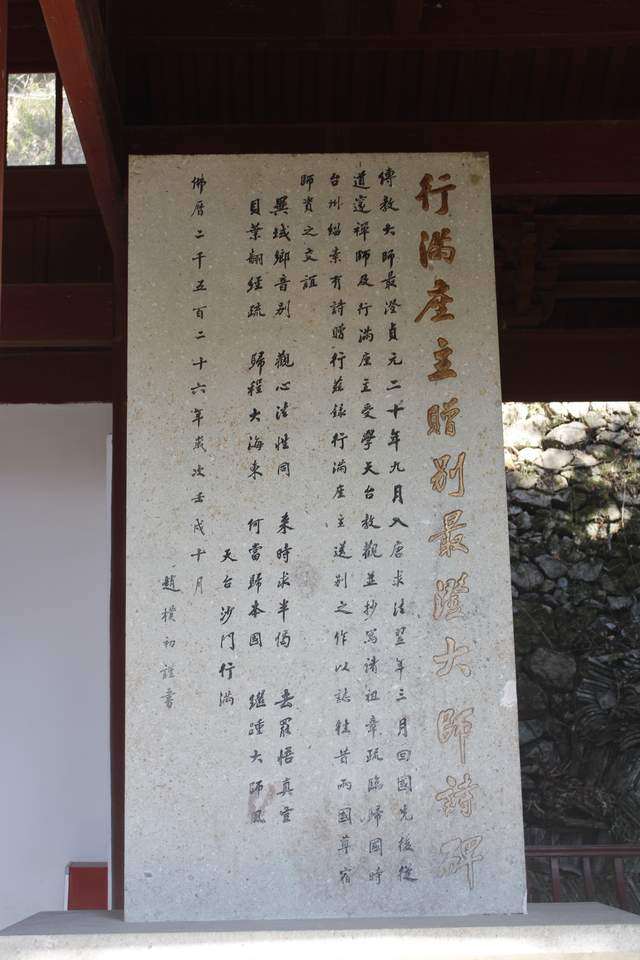 行滿座主贈別最澄大師詩碑
傳教大師最澄貞元二十年九月入唐求法翌年三月回國先後從
道邃禪師及行滿座主受學天台教觀並抄寫諸祖章疏臨歸國時
台州緇素有詩贈行茲錄行滿座主送別之作以誌往昔兩國尊宿
師資之交誼
異域鄉音別 觀心法性同 來時求半偈 去罷悟真空
貝葉翻經疏 歸程大海東 何當歸本國 繼踵大師風
天台沙門行滿
佛曆二千五百二十六年歲次壬戌十月
趙樸初謹書